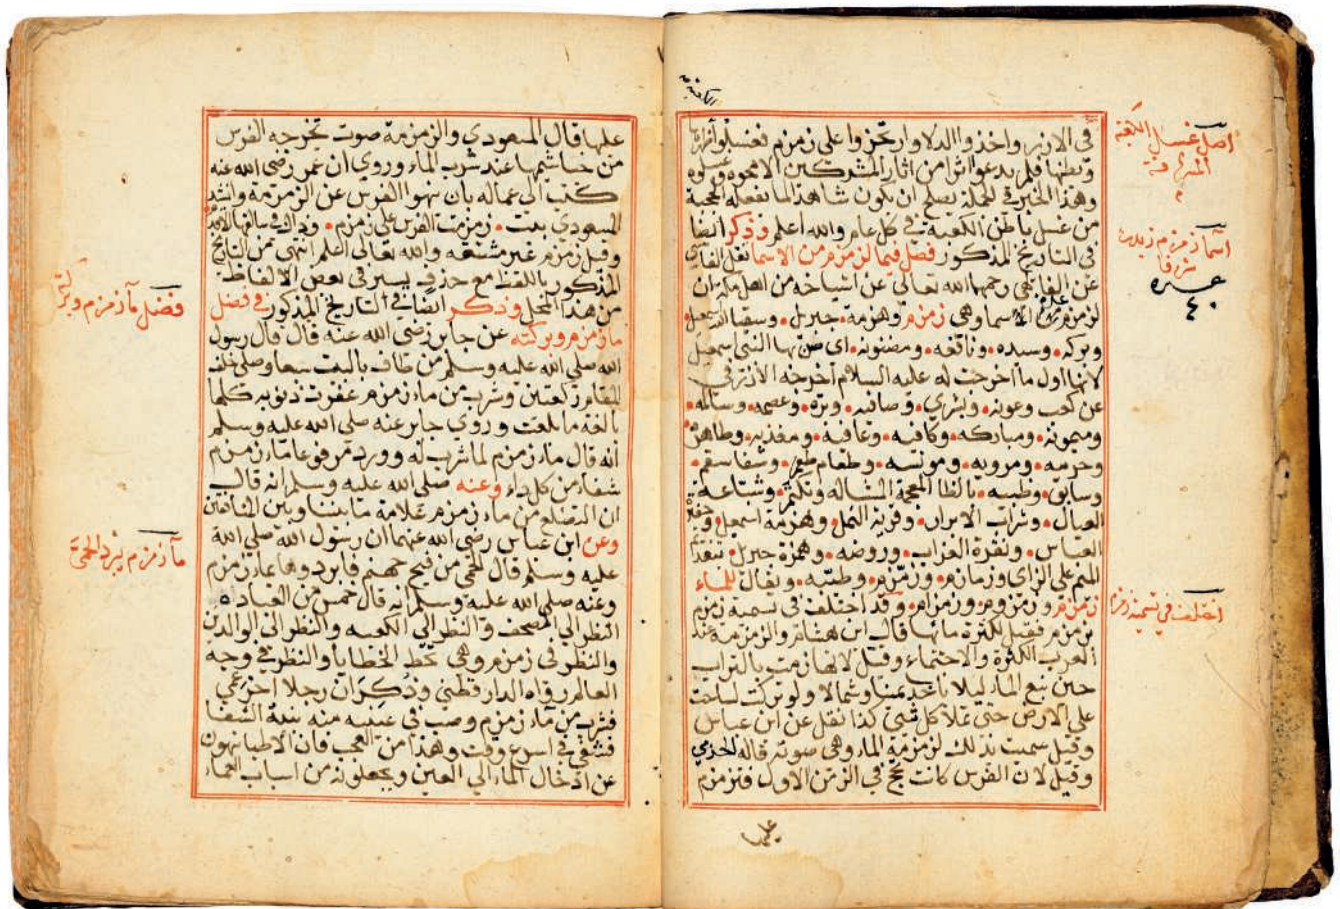 الكعبة
في الازر واخذوا الدلاء وارتجزوا على زمزم فغسلوا ظهرها
وبطنها فلم يدعوا اثرا من اثار المشركين الا محوه وغسلوه
وهذا الخبر في الجملة يصلح ان يكون شاهدا لما تفعله الحجبة
من غسل باطن الكعبة في كل عام والله اعلم وذكر ايضا
في التاريخ المذكور فصل فيما لزمزم من الاسما نقل الفاسي
عن الفاكهي رحمهما الله تعالى عن اشياخه من اهل مكة ان
لزمزم عدة اسما وهي زمزم وهزمة جبريل وسقيا الله اسمعيل
وبركه وسيده ونافعه ومضنونه اي ضن بها النبي اسمعيل
لانها اول ما اخرجت له عليه السلام اخرجه الازرقي
عن كعب وعونه وبشري وصافيه وبره وعصمه وسالمه
وميمونة ومباركه وكافيه وعافية ومغذيه وطاهره
وحرمه ومرويه ومونسه وطعام طعم وشفا سقم
وسابق وظبيه بالظا المعجمة المشاله وتكتم وشباعة
العيال وشراب الابرار وقرية النمل وهزمة اسمعيل وحفيرة
العباس ونقرة الغراب وروضه وهمزة جبريل بتقديم
الميم على الزاي وزمازم وزمزم وطيبه ويقال للماء
زمزم وزمزوم وزمزام وقد اختلف في تسمية زمزم
بزمزم فقيل لكثرة مائها قال ابن هشام والزمزمة عند
العرب الكثرة والاجتماع وقيل لانها زمت بالتراب
حين نبع الماء ليلا ياخذ يمينا وشمالا ولو تركت لساحت
على الارض حتى تملا كل شي كذا نقل عن ابن عباس
وقيل سميت بذلك لزمزمة الماء وهي صوته قاله الحربي
وقيل لان الفرس كانت تحج في الزمن الاول فتزمزم
عليها
اصل غسل الكعبة
المشرفة
اسما زمزم زيدت
شرفا
اختلف في تسمية زمزم
عليها قال المسعودي والزمزمة صوت تخرجه الفرس
من خياشيمها عند شرب الماء وروي ان عمر رضي الله عنه
كتب الى عماله بان ينهوا الفرس عن الزمزمة وانشد
المسعودي بيت زمزمت الفرس على زمزم وذاك في سالفها الاقدم
وقيل زمزم غير مشتقه والله تعالى اعلم انتهى من التاريخ
المذكور باللفظ مع حذف يسير في بعض الالفاظ
من هذا المحل وذكر ايضا في التاريخ المذكور في فضل
ماء زمزم وبركته عن جابر رضي الله عنه قال قال رسول
الله صلى الله عليه وسلم من طاف بالبيت سبعا وصلى خلف
المقام ركعتين وشرب من ماء زمزم غفرت ذنوبه كلها
بالغة ما بلغت وروي جابر عنه صلى الله عليه وسلم
انه قال ماء زمزم لما شرب له وورد مرفوعا ماء زمزم
شفاء من كل داء وعنه صلى الله عليه وسلم انه قال
ان التضلع من ماء زمزم علامة ما بيننا وبين المنافقين
وعن ابن عباس رضي الله عنهما ان رسول الله صلى الله
عليه وسلم قال الحمى من فيح جهنم فابردوها بماء زمزم
وعنه صلى الله عليه وسلم انه قال خمس من العبادة
النظر الى المصحف والنظر الى الكعبه والنظر الى الوالدين
والنظر في زمزم وهي تحط الخطايا والنظر في وجه
العالم رواه الدارقطني وذكر ان رجلا اخر عمي
فشرب من ماء زمزم وصب في عينيه منه بنية الشفا
فشفي في اسرع وقت وهذا من العجب فان الاطبا ينهون
عن ادخال الماء الى العين ويجعلونه من اسباب العماء
فضل ماء زمزم وبركته
ماء زمزم يبرد الحمى